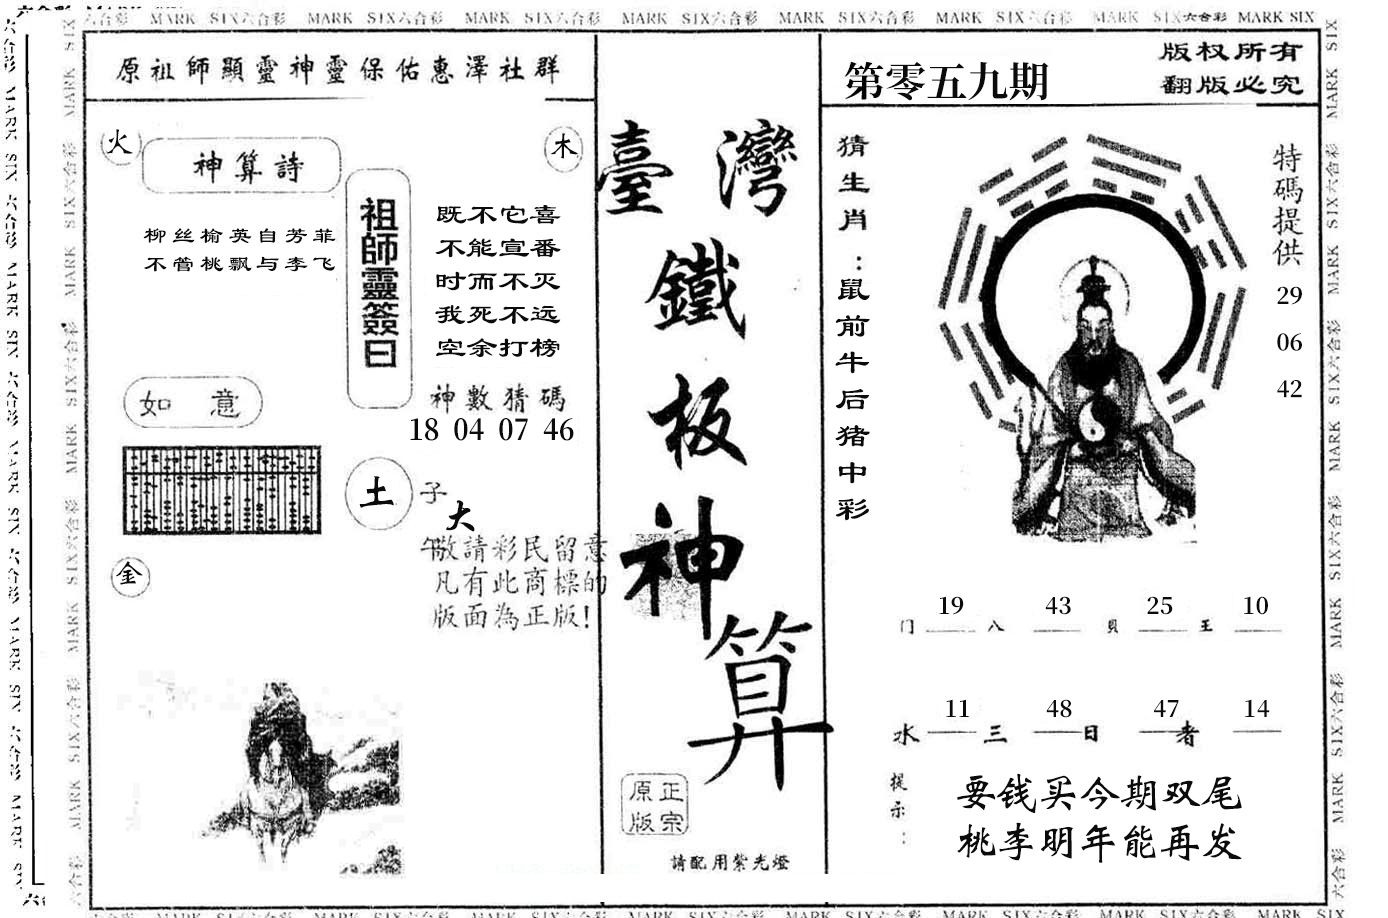 六合彩 MARK SIX六合彩 MARK SIX六合彩 MARK SIX六合彩 MARK SIX六合彩 MARK SIX六合彩 MARK SIX六合彩 MARK SIX六合彩 MARK SIX
原祖師顯靈神靈保佑惠澤社群
火
木
神算詩
柳丝榆英自芳菲
不管桃飘与李飞
祖師靈簽曰
既不它喜
不能宣番
时而不灭
我死不远
空余打榜
神數猜碼
18 04 07 46
如 意
土
子
大
午
敬請彩民留意
凡有此商標的
版面為正版!
金
臺灣
鐵
板
神
算
正宗
原版
請配用紫光燈
第零五九期
版权所有
翻版必究
猜生肖:鼠前牛后猪中彩
特碼提供
29
06
42
19 43 25 10
门 八 貝 王
11 48 47 14
水 三 日 者
提示:
要钱买今期双尾
桃李明年能再发